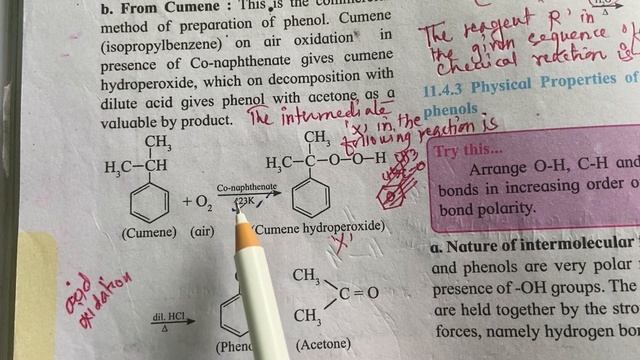 b. From Cumene : This is the commercial
method of preparation of phenol. Cumene
(isopropylbenzene) on air oxidation in
presence of Co-naphthenate gives cumene
hydroperoxide, which on decomposition with
dilute acid gives phenol with acetone as a
valuable by product.
The intermediate
'x' in the
following reaction is
CH3
H3C–CH
+ O2
Co-naphthenate
423K
CH3
H3C–C–O–O–H
(Cumene) (air)
(Cumene hydroperoxide)
'X'
acid
oxidation
dil. HCl
Δ
(Pheno
CH3
C=O
CH3
(Acetone)
The reagent 'R' in
the given sequence of
chemical reaction is
Δ
11.4.3 Physical Properties of
phenols
Try this...
Arrange O-H, C-H and
bonds in increasing order o
bond polarity.
a. Nature of intermolecular
and phenols are very polar
presence of -OH groups. The
are held together by the stro
forces, namely hydrogen bo